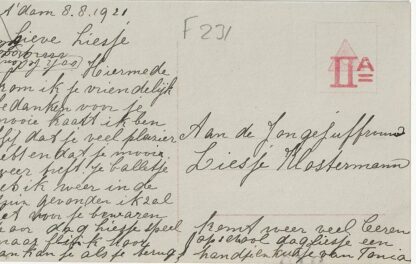 A'dam 8.8.1921
Lieve Liesje
Hiermede
kom ik je vriendelijk
bedanken voor je
mooie kaart ik ben
blij dat je veel plezier
hebt en dat je mooi
weer heeft Je balletje
heb ik weer in de
gevonden ik zal
het voor je bewaren
hoor dag liesje speel
maar flink hoor
dan kan je als je terug
komt weer veel leeren
op school dag liesje een
handje en kusje van Tonia
F 231
IIA
Aan de Jongejuffrouw
Liesje Klostermann